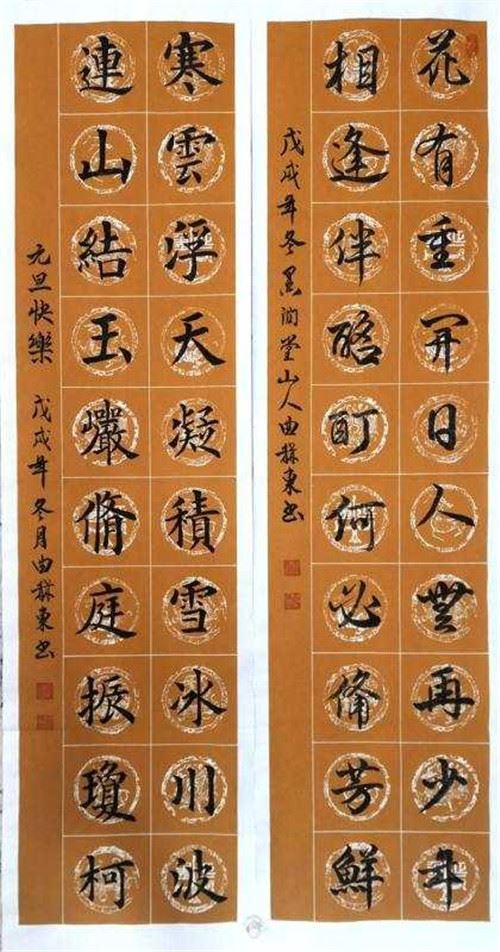 花有重開日人無再少年
相逢伴酩酊何必備芳鮮
戊戌年冬 山人由東书
寒雲浮天凝積雪冰川波
連山結玉巖脩庭振瓊柯
元旦快樂 戊戌年冬月由東书